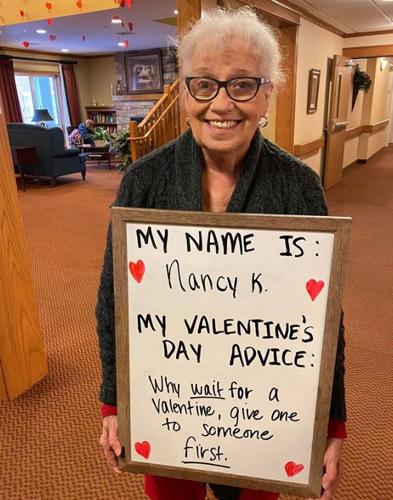 MY NAME IS:
Nancy K.
MY VALENTINE'S
DAY ADVICE:
Why wait for a
valentine, give one
to someone
first.